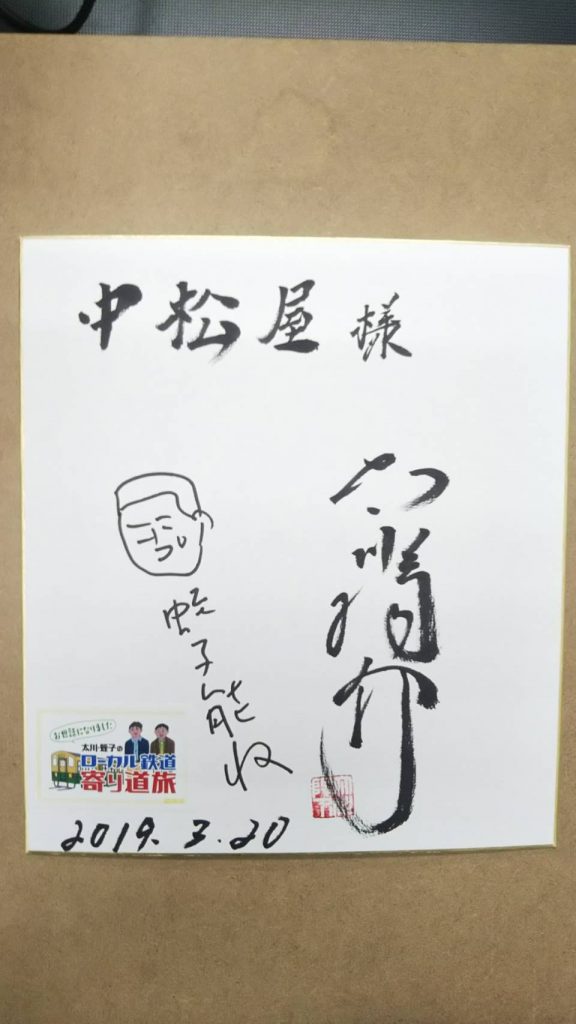 中松屋 様
太川陽介
蛭子能収
お世話になりました
太川・蛭子の
ローカル鉄道
寄り道旅
2019. 3. 20